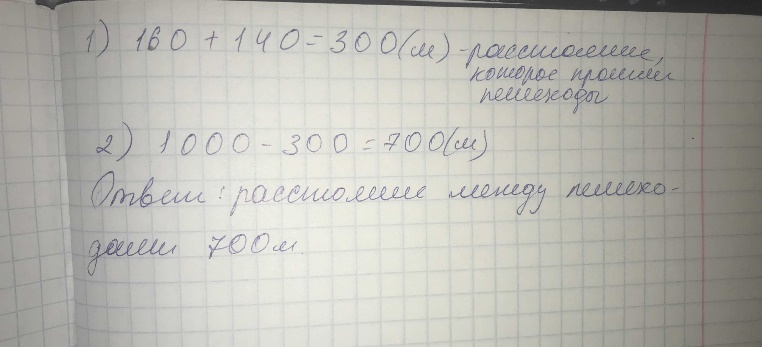 1) 160 + 140 = 300(м) - расстояние,
которое прошли
пешеходы
2) 1000 - 300 = 700(м)
Ответ: расстояние между пешехо-
дами 700м.